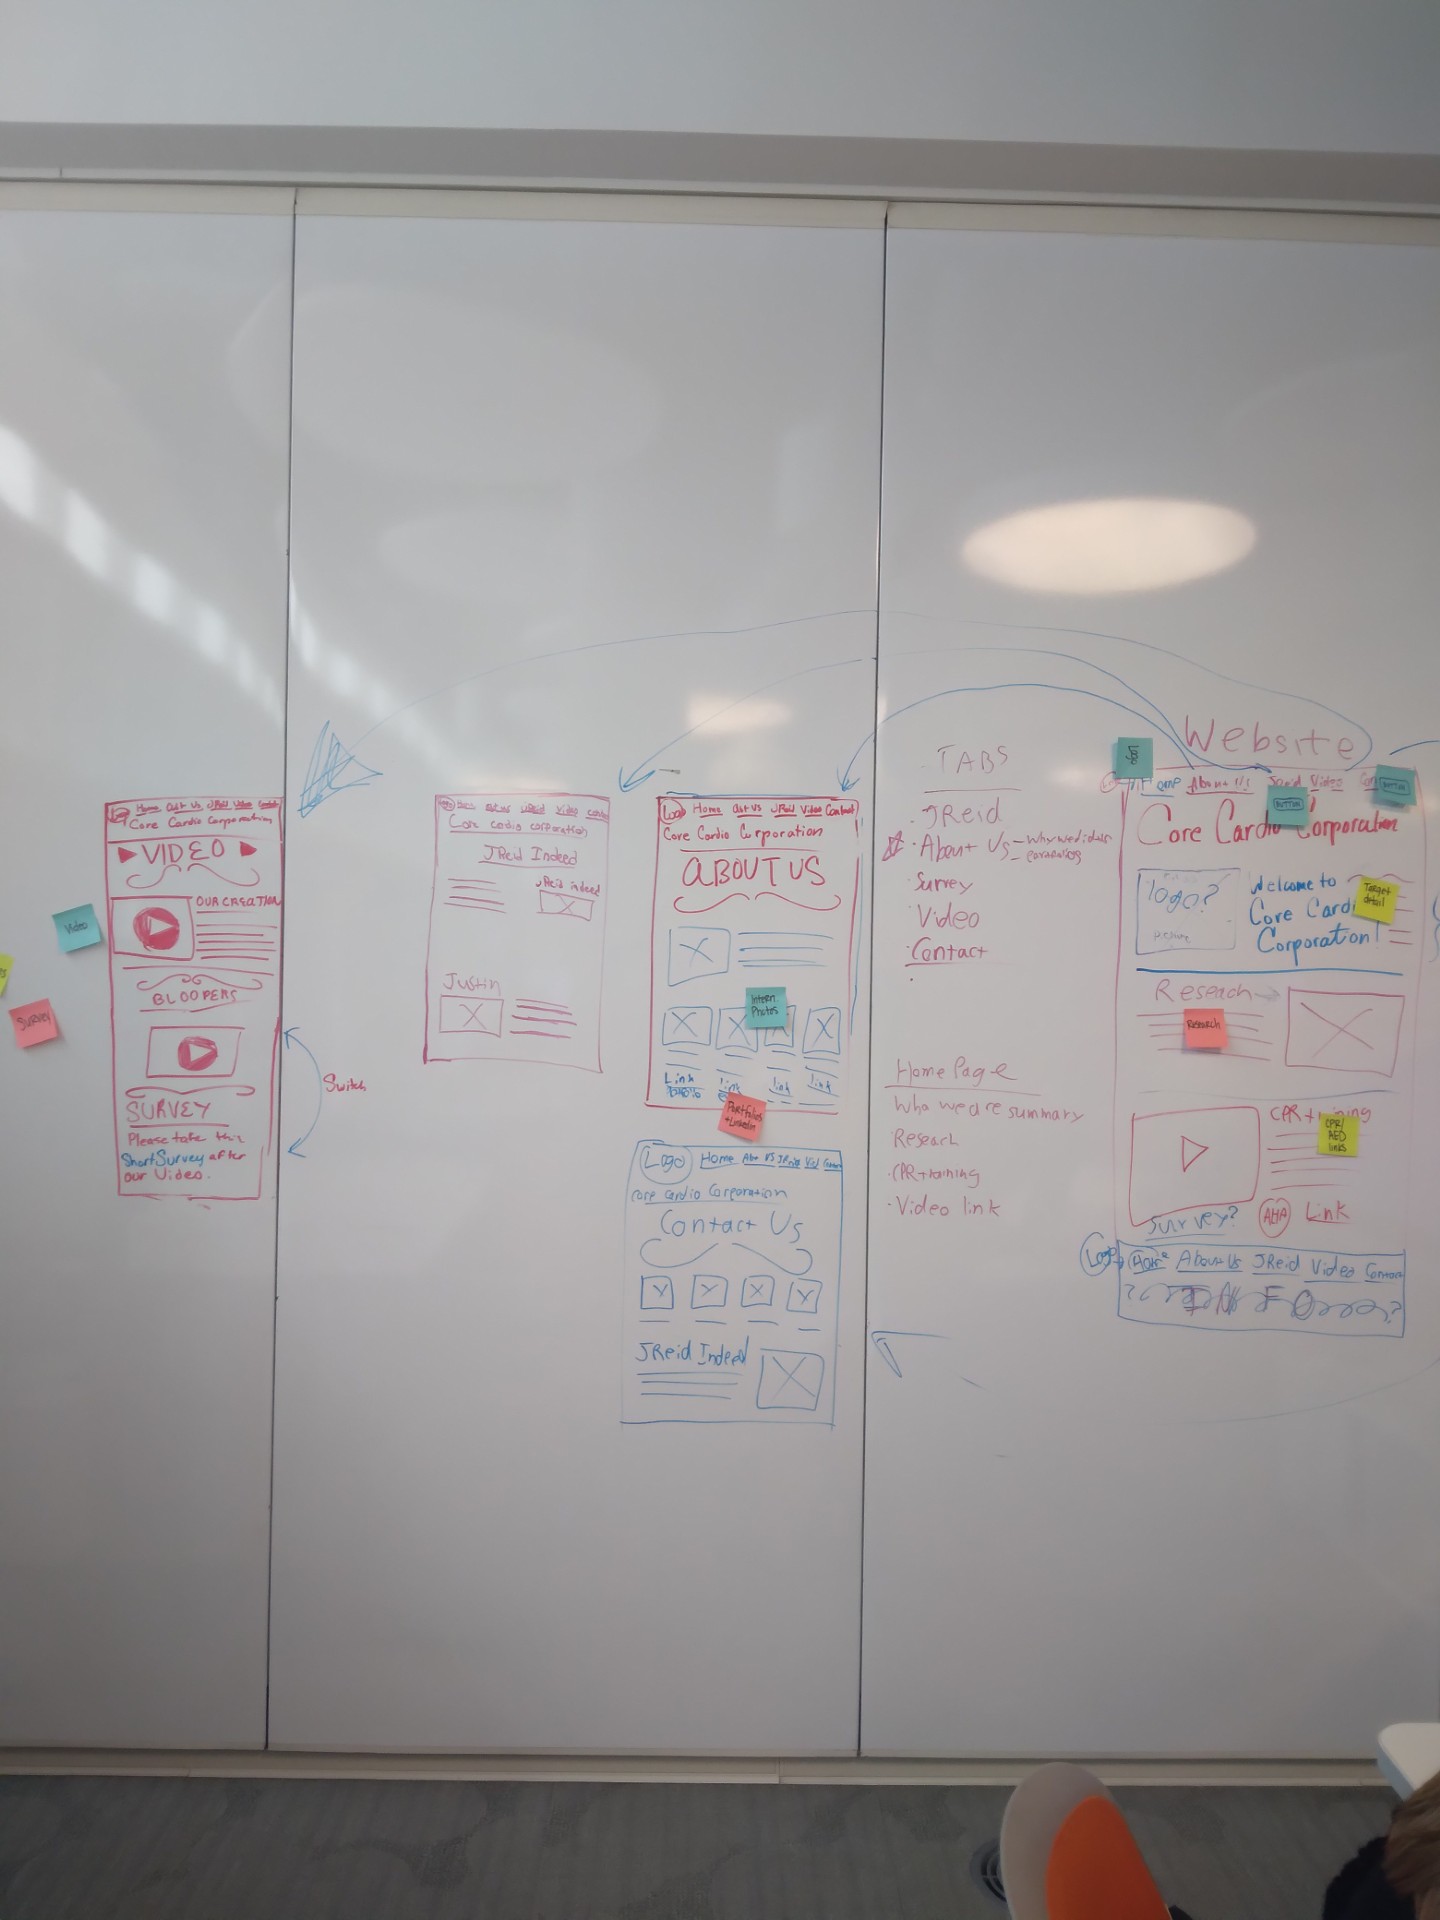 Home About Us JReid Video Contact
Core Cardio Corporation
VIDEO
OUR CREATION
BLOOPERS
SURVEY
Please take this
Short Survey after
our Video.
Video
Survey
Switch
Core cardio corporation
JReid Indeed
JReid indeed
Justin
Logo Home Out Us JReid Video Contact
Core Cardio Corporation
ABOUT US
Intern
Photos
Link
link
link
link
Portfolios
+ Linkedin
Logo Home
Core Cardio Corporation
Contact Us
JReid Indeed
TABS
· JReid
· About Us
· Survey
· Video
· Contact
·
Home Page
Who we are summary
Reseach
· CPR training
· Video link
Website
About Us JReid Video
BUTTON
BUTTON
Core Cardio Corporation
logo?
Welcome to
Core Cardi
Corporation!
Target
detail
Reseach
Research
CPR training
CPR/
AED
links
AHA Link
Survey?
Logo Home About Us JReid Video Contact
? INFO ?